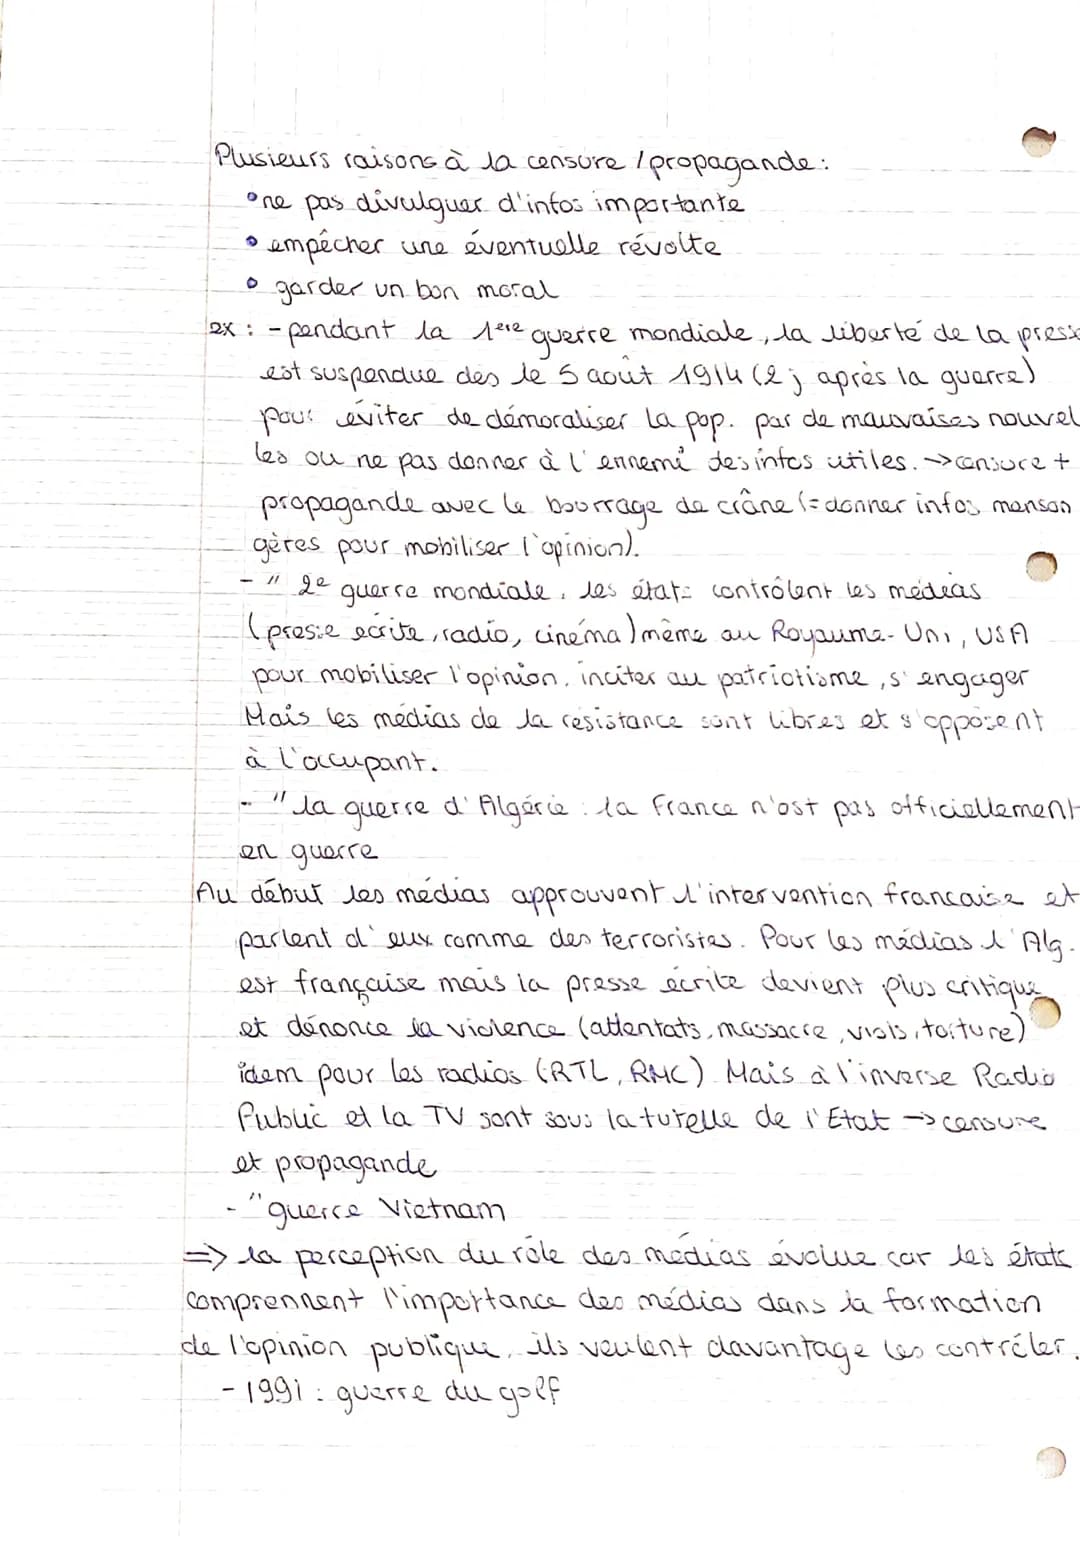 Plusieurs raisons à la censure / propagande :
• ne pas divulguer d'infos importante
• empêcher une éventuelle révolte
• garder un bon moral
ex : - pendant la 1ere guerre mondiale, la liberté de la presse
est suspendue des le 5 août 1914 (2j après la guerre)
pour éviter de démoraliser la pop. par de mauvaises nouvel
les ou ne pas donner à l'ennemi des infos utiles. → censure +
propagande avec le bourrage de crâne (= donner infos menson
gères pour mobiliser l'opinion).
- " 2e guerre mondiale, les états contrôlent les médias
(presse écrite, radio, cinéma) même au Royaume-Uni, USA
pour mobiliser l'opinion, inciter au patriotisme, s'engager
Mais les médias de la résistance sont libres et s'opposent
à l'occupant.
- " la guerre d'Algérie : la France n'est pas officiellement
en guerre
Au début les médias approuvent l'intervention francaise et
parlent d'eux comme des terroristes. Pour les médias l'Alg.
est française mais la presse écrite devient plus critique
et dénonce la violence (attentats, massacre, viols, torture)
idem pour les radios (RTL, RMC) Mais à l'inverse Radio
Public et la TV sont sous la tutelle de l'Etat → censure
et propagande
- " guerre Vietnam
=> la perception du rôle des médias évolue car les états
comprennent l'importance des médias dans la formation
de l'opinion publique, ils veulent davantage les contrôler.
- 1991 : guerre du golf